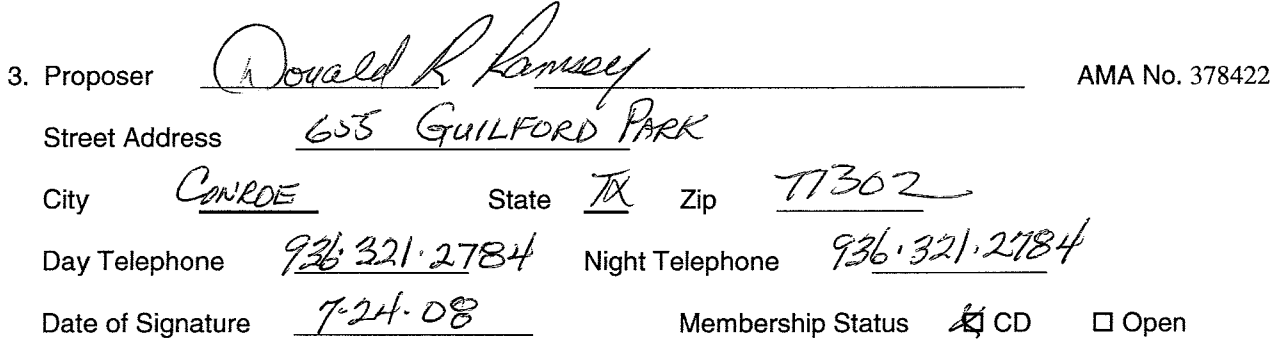 3. Proposer Donald R Ramsey AMA No. 378422
Street Address 655 GUILFORD PARK
City CONROE State TX Zip 77302
Day Telephone 936·321·2784 Night Telephone 936·321·2784
Date of Signature 7-24-08 Membership Status ☒ CD ☐ Open